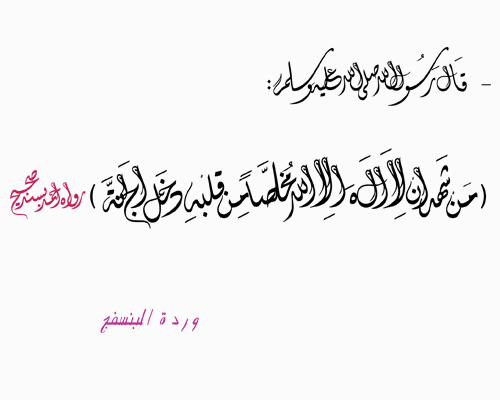 - قَال رَسُول الله صلى الله عليه وسلم :
( مَن شَهد ان لاَ اِلَه اِلا الله مُخلصًّا مِن قلبهِ دخَل الجَنةَّ ) رواه احمد بسند صحيح
وردة البنسفج